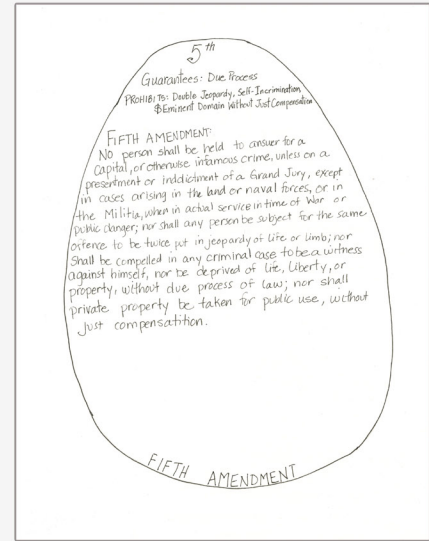 5th
Guarantees: Due Process
PROHIBITS: Double Jeopardy, Self-Incrimination,
& Eminent Domain Without Just Compensation
FIFTH AMENDMENT:
No person shall be held to answer for a
Capital, or otherwise infamous crime, unless on a
presentment or indictment of a Grand Jury, except
in cases arising in the land or naval forces, or in
the Militia, when in actual service in time of War or
public danger; nor shall any person be subject for the same
offence to be twice put in jeopardy of life or limb; nor
Shall be compelled in any criminal case to be a witness
against himself, nor be deprived of life, Liberty, or
property, without due process of law; nor shall
private property be taken for public use, without
just compensatition.
FIFTH AMENDMENT